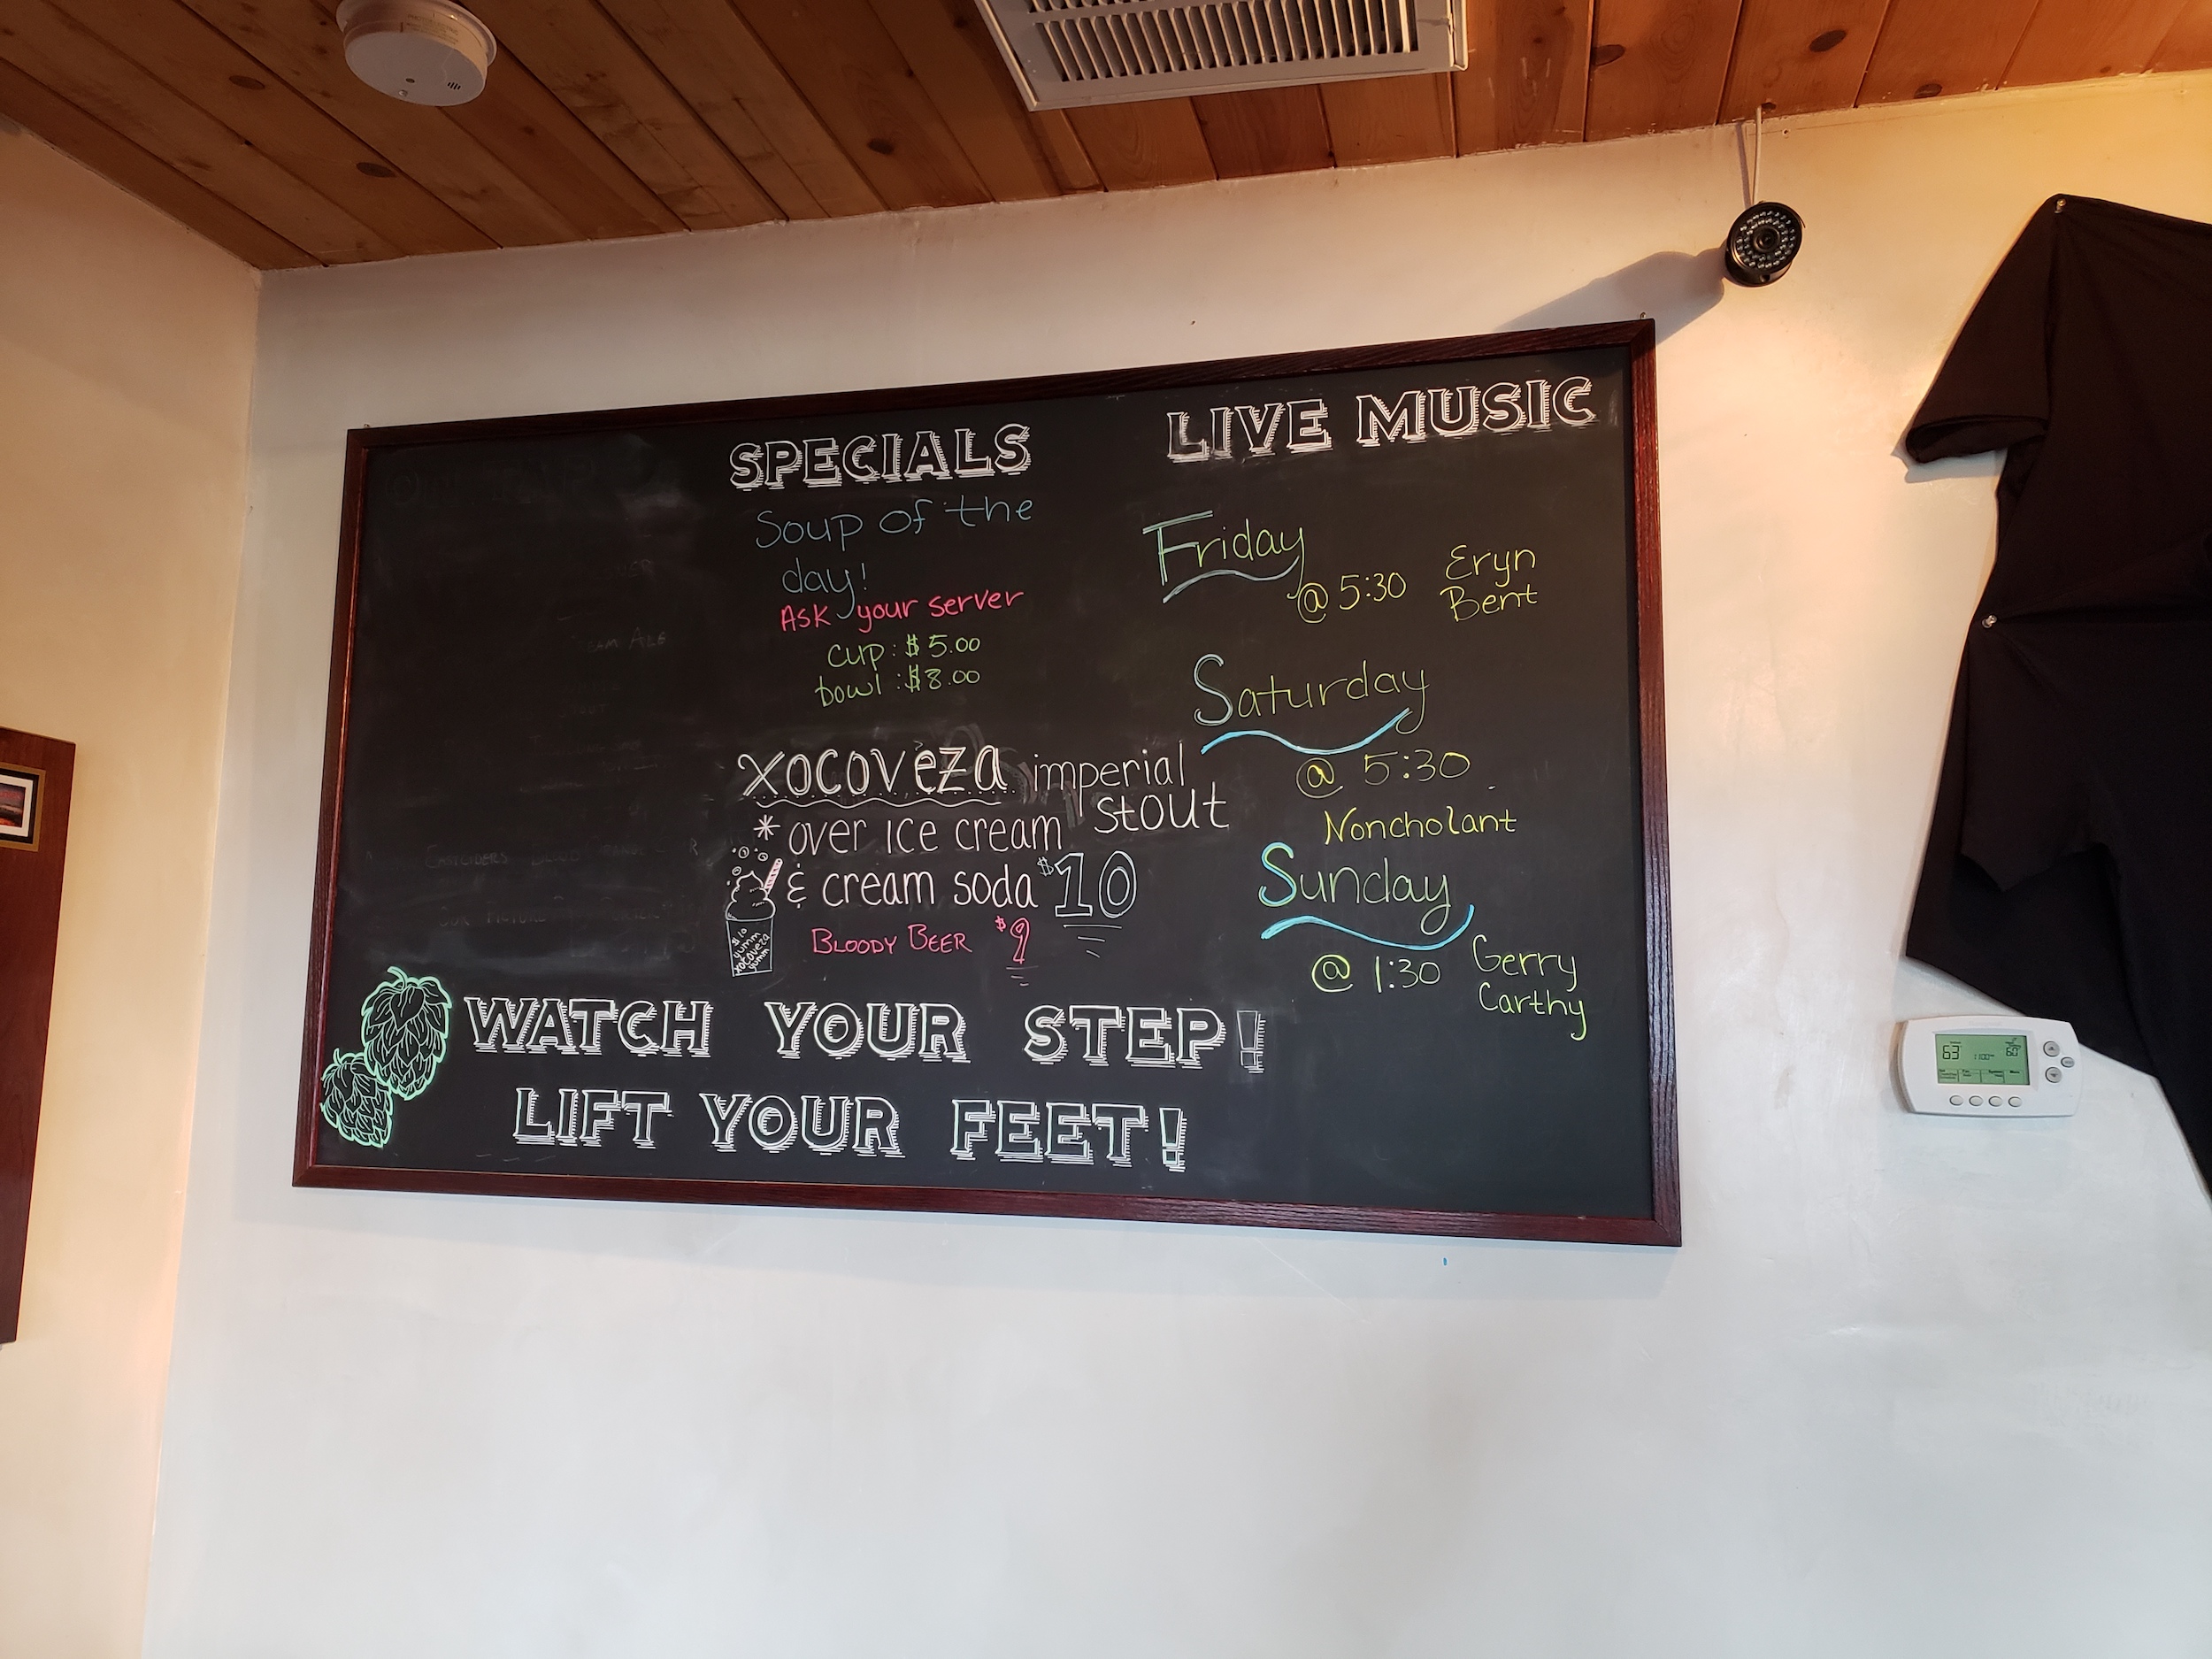 SPECIALS
Soup of the
day!
Ask your server
cup: $5.00
bowl: $8.00
xocoveza imperial
stout
* over ice cream
& cream soda $10
BLOODY BEER $9
$10
yumm
xocoveza
yumm
LIVE MUSIC
Friday
@ 5:30 Eryn
Bent
Saturday
@ 5:30
Noncholant
Sunday
@ 1:30 Gerry
Carthy
WATCH YOUR STEP!
LIFT YOUR FEET!
63